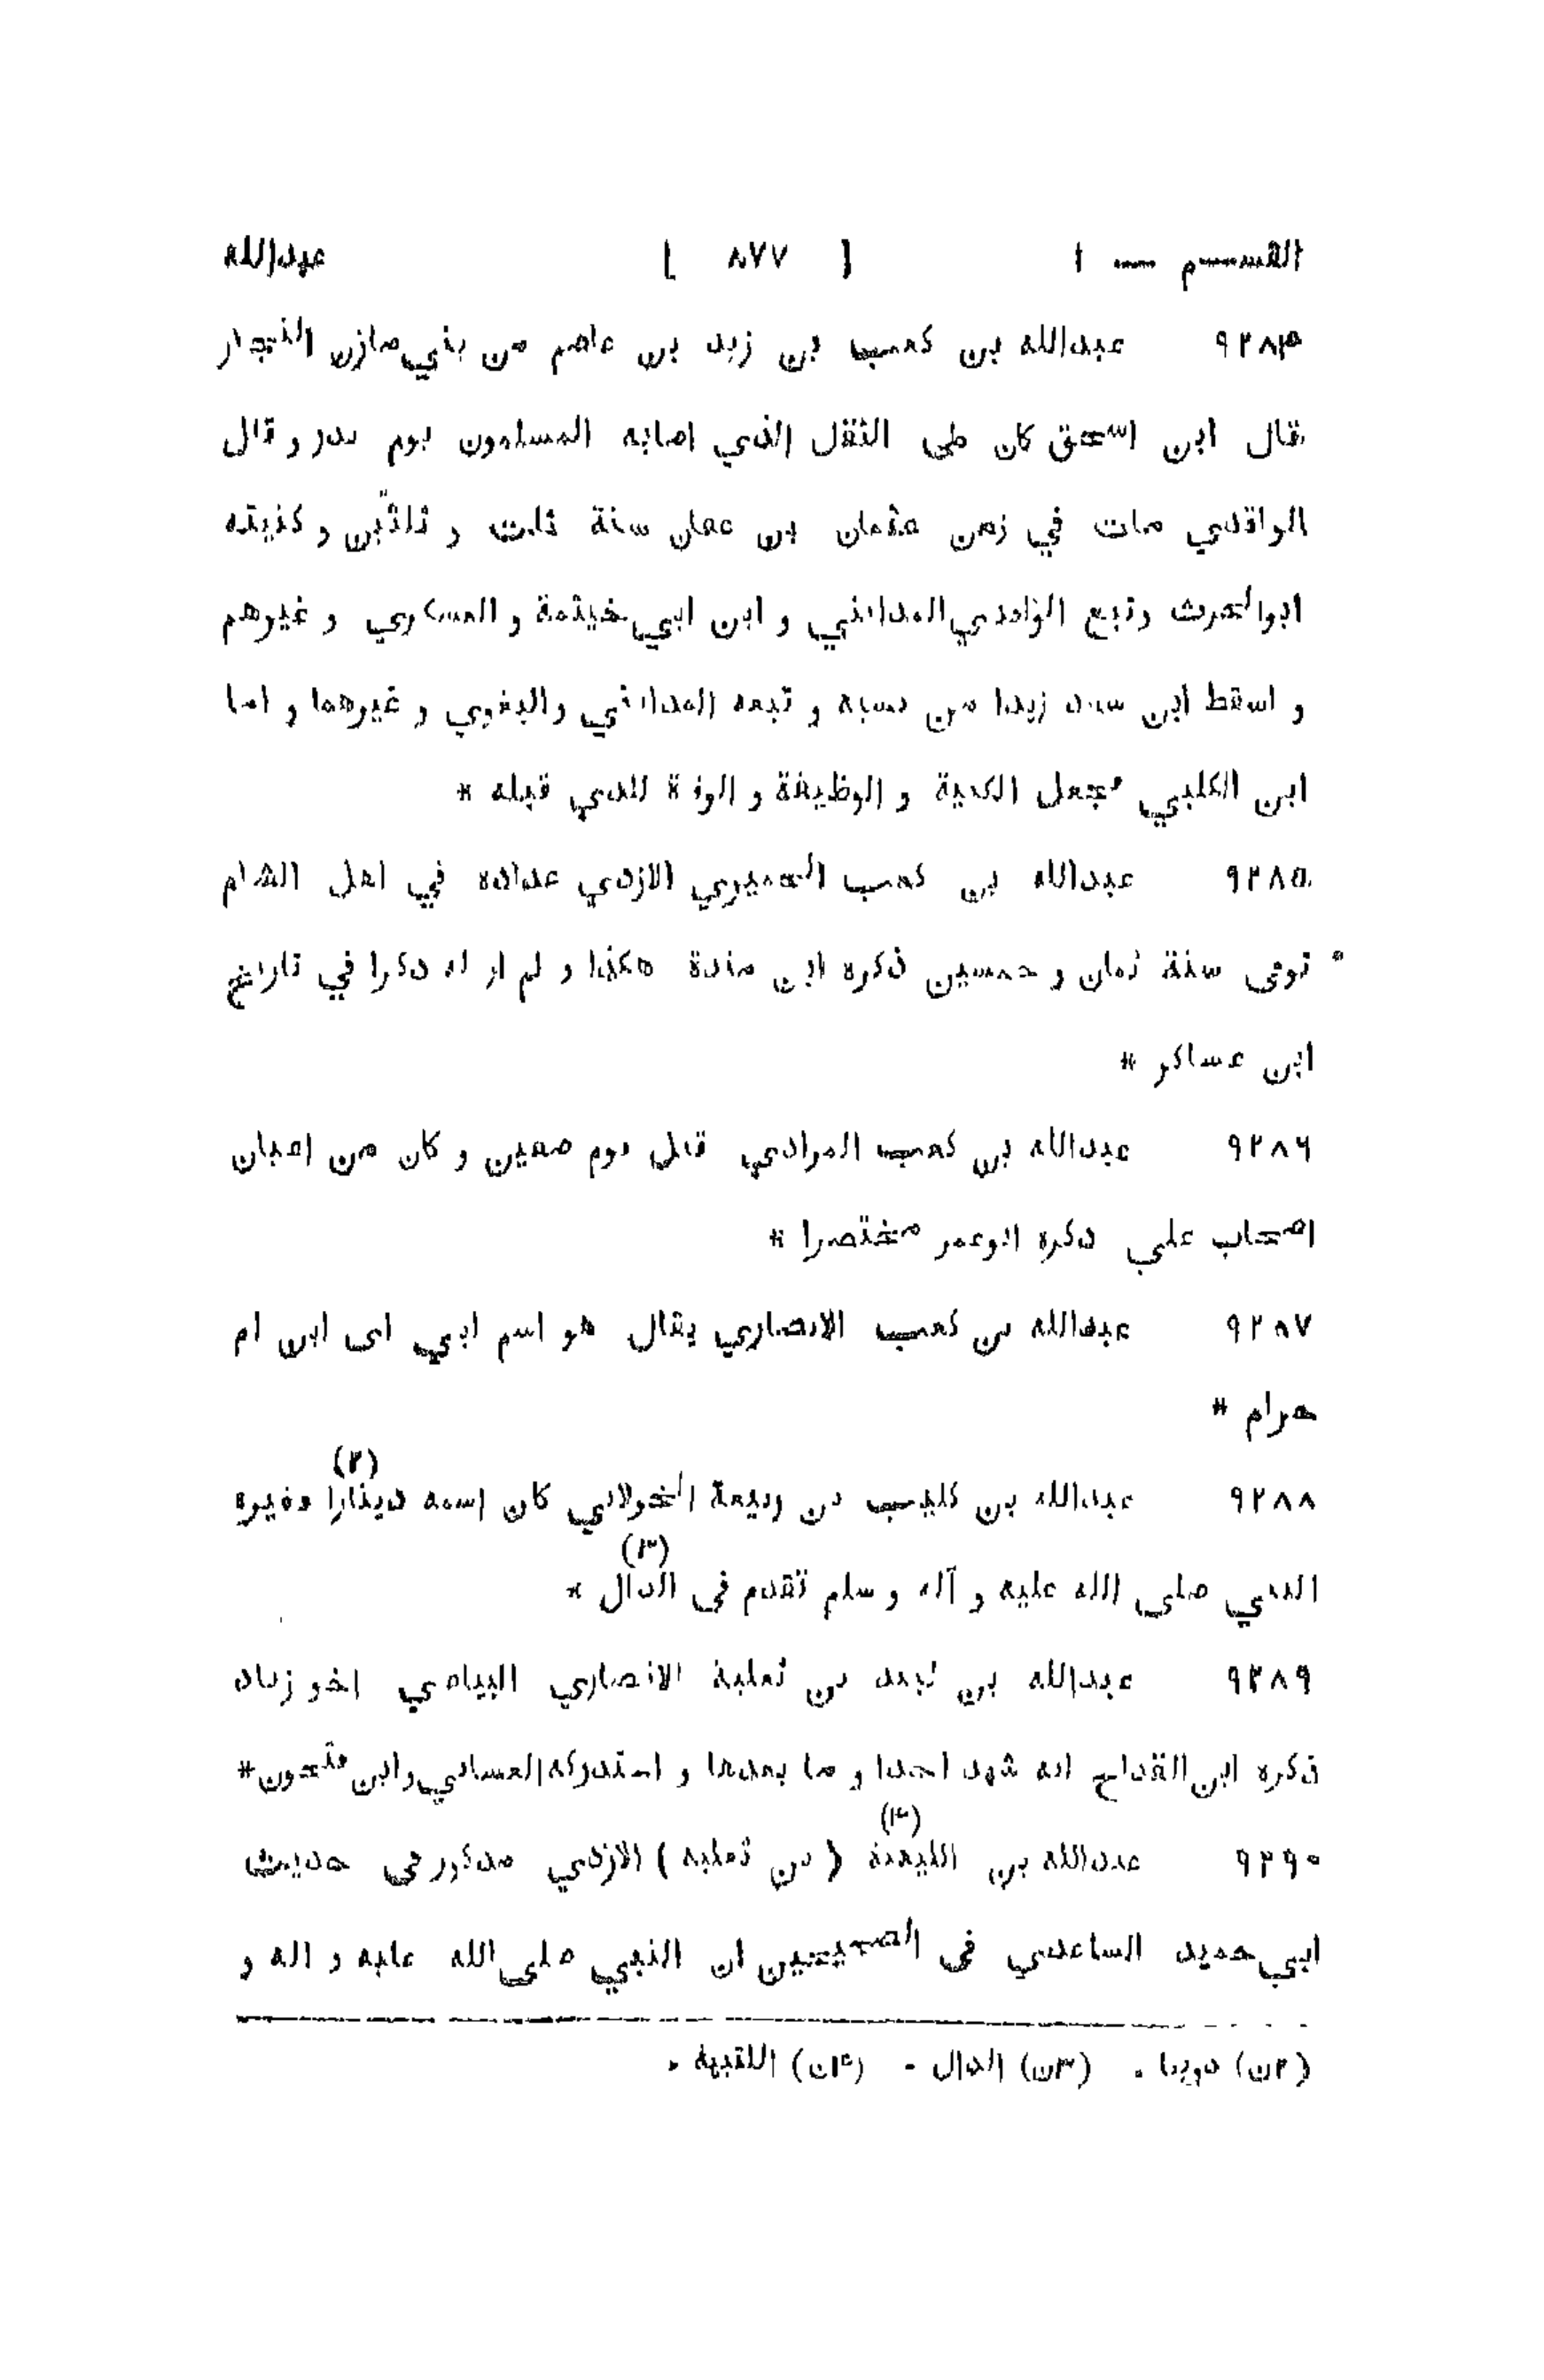 القسم — ١ [ ٨٧٧ ] عبدالله
٩٢٨٤ عبدالله بن كعب بن زيد بن عاصم من بني مازن النجار
قال ابن اسحق كان على الثقل الذي اصابه المسلمون يوم بدر و قال
الواقدي مات في زمن عثمان بن عفان سنة ثلث و ثلثين و كنيته
ابوالحرث وتبع الواقدي المدائني و ابن ابي خيثمة و العسكري و غيرهم
و اسقط ابن سعد زيدا من نسبه و تبعه المدائني والبغوي و غيرهما و اما
ابن الكلبي فجعل الكنية و الوظيفة و الوفاة للذي قبله *
٩٢٨٥ عبدالله بن كعب الحميري الازدي عداده في اهل الشام
توفى سنة ثمان و خمسين ذكره ابن مندة هكذا و لم ار له ذكرا في تاريخ
ابن عساكر *
٩٢٨٦ عبدالله بن كعب المرادي قتل يوم صفين و كان من اعيان
اصحاب علي ذكره ابوعمر مختصرا *
٩٢٨٧ عبدالله بن كعب الانصاري يقال هو اسم ابي ابى ابن ام
حرام *
٩٢٨٨ عبدالله بن كليب بن ربيعة الخولاني كان اسمه دينارا (٢) فغيره
النبي صلى الله عليه و آله و سلم تقدم فى الدال (٣) *
٩٢٨٩ عبدالله بن لبيد بن ثعلبة الانصاري البياضي اخو زياد
ذكره ابن القداح انه شهد احدا و ما بعدها و استدركه الغساني وابن فتحون *
٩٢٩٠ عبدالله بن اللتبية (٤) ( بن ثعلبه ) الازدي مذكور فى حديث
ابي حميد الساعدي فى الصحيحين ان النبي صلى الله عليه و اله و
(٢ن) . (٣ن) الدال - (٤ن) اللتبية .